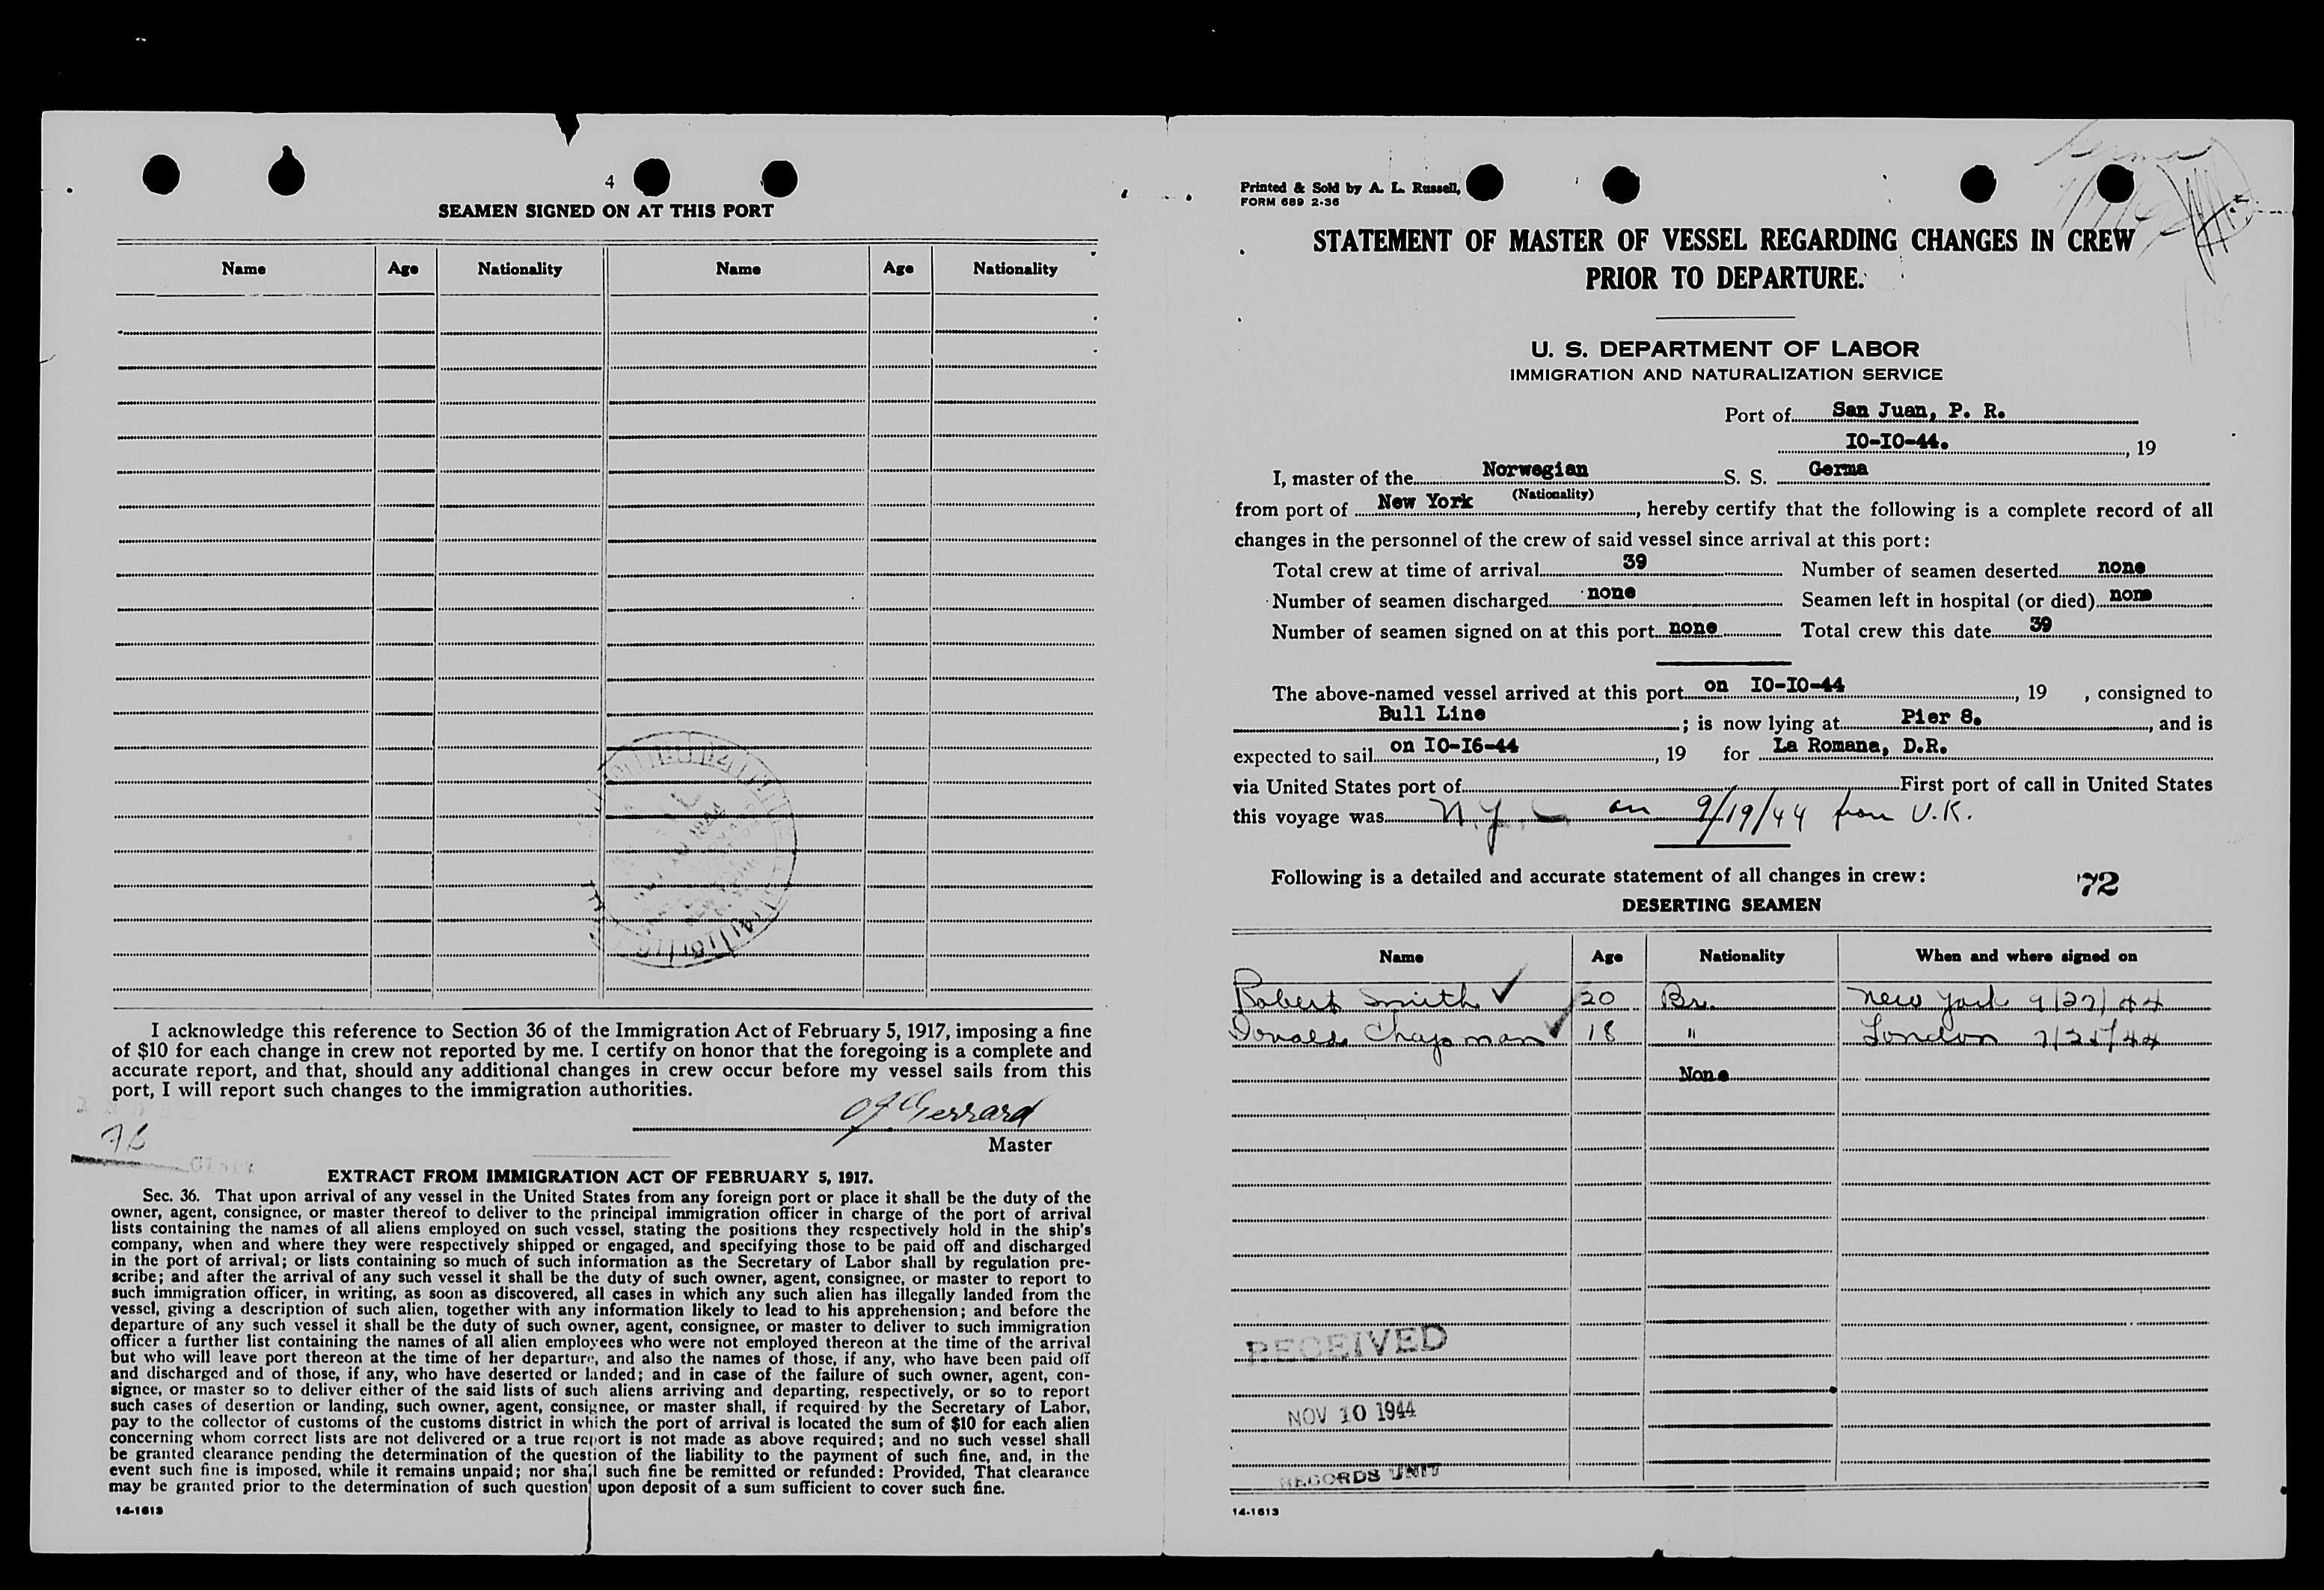 4
SEAMEN SIGNED ON AT THIS PORT
Name Age Nationality Name Age Nationality
I acknowledge this reference to Section 36 of the Immigration Act of February 5, 1917, imposing a fine
of $10 for each change in crew not reported by me. I certify on honor that the foregoing is a complete and
accurate report, and that, should any additional changes in crew occur before my vessel sails from this
port, I will report such changes to the immigration authorities.
Gerrard
Master
EXTRACT FROM IMMIGRATION ACT OF FEBRUARY 5, 1917.
Sec. 36. That upon arrival of any vessel in the United States from any foreign port or place it shall be the duty of the
owner, agent, consignee, or master thereof to deliver to the principal immigration officer in charge of the port of arrival
lists containing the names of all aliens employed on such vessel, stating the positions they respectively hold in the ship's
company, when and where they were respectively shipped or engaged, and specifying those to be paid off and discharged
in the port of arrival; or lists containing so much of such information as the Secretary of Labor shall by regulation pre-
scribe; and after the arrival of any such vessel it shall be the duty of such owner, agent, consignee, or master to report to
such immigration officer, in writing, as soon as discovered, all cases in which any such alien has illegally landed from the
vessel, giving a description of such alien, together with any information likely to lead to his apprehension; and before the
departure of any such vessel it shall be the duty of such owner, agent, consignee, or master to deliver to such immigration
officer a further list containing the names of all alien employees who were not employed thereon at the time of the arrival
but who will leave port thereon at the time of her departure, and also the names of those, if any, who have been paid off
and discharged and of those, if any, who have deserted or landed; and in case of the failure of such owner, agent, con-
signee, or master so to deliver either of the said lists of such aliens arriving and departing, respectively, or so to report
such cases of desertion or landing, such owner, agent, consignee, or master shall, if required by the Secretary of Labor,
pay to the collector of customs of the customs district in which the port of arrival is located the sum of $10 for each alien
concerning whom correct lists are not delivered or a true report is not made as above required; and no such vessel shall
be granted clearance pending the determination of the question of the liability to the payment of such fine, and, in the
event such fine is imposed, while it remains unpaid; nor shall such fine be remitted or refunded: Provided, That clearance
may be granted prior to the determination of such question upon deposit of a sum sufficient to cover such fine.
14-1613
Germa
Printed & Sold by A. L. Russell,
FORM 689 2-36
STATEMENT OF MASTER OF VESSEL REGARDING CHANGES IN CREW
PRIOR TO DEPARTURE.
U. S. DEPARTMENT OF LABOR
IMMIGRATION AND NATURALIZATION SERVICE
Port of San Juan, P. R.
IO-IO-44. , 19
I, master of the Norwegian S. S. Germa
(Nationality)
from port of New York , hereby certify that the following is a complete record of all
changes in the personnel of the crew of said vessel since arrival at this port:
Total crew at time of arrival 39 Number of seamen deserted none
Number of seamen discharged none Seamen left in hospital (or died) none
Number of seamen signed on at this port none Total crew this date 39
The above-named vessel arrived at this port on IO-IO-44 , 19 , consigned to
Bull Line ; is now lying at Pier 8. , and is
expected to sail on IO-I6-44 , 19 for La Romana, D.R.
via United States port of First port of call in United States
this voyage was N.Y. on 9/19/44 from U.K.
Following is a detailed and accurate statement of all changes in crew: 72
DESERTING SEAMEN
Name Age Nationality When and where signed on
Robert Smith ✓ 20 Br. New York 9/27/44
Donald Chapman ✓ 18 " London 7/25/44
None
RECEIVED
NOV 10 1944
RECORDS UNIT
14-1613